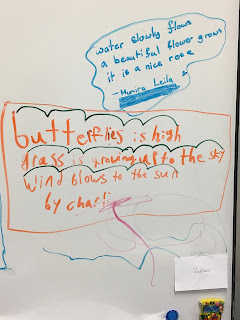 water slowly flows
a beautiful flower grows
it is a nice rose
- Munira Leila
butterflies is high
grass is growing up to the sky
wind blows to the sun
by charli